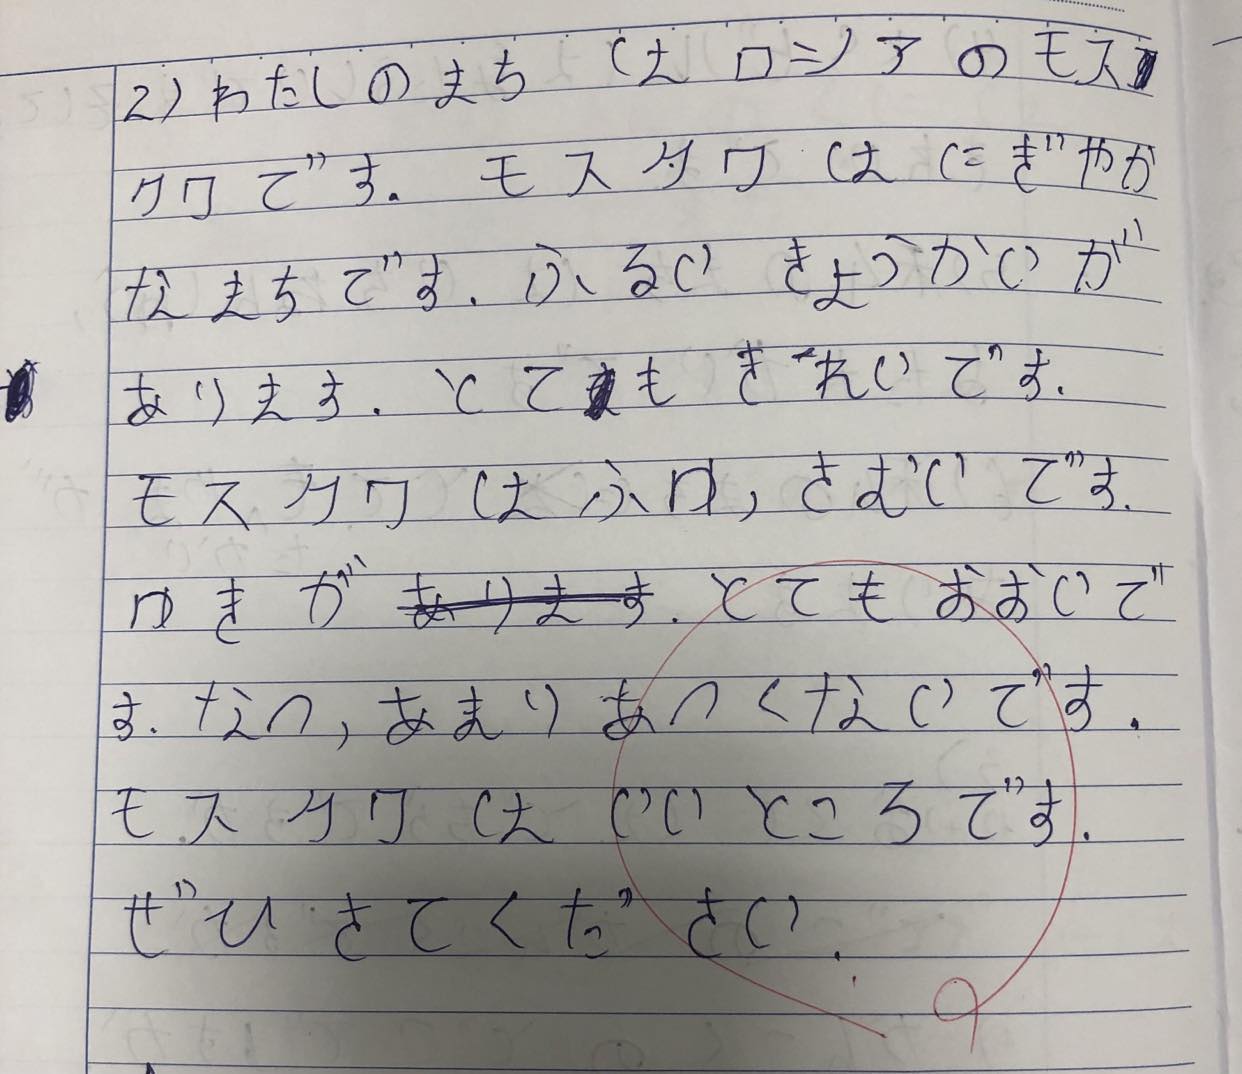 2) わたしのまち はロシアのモス
クワです. モスクワ はにぎやか
なまちです. ふるい きょうかいが
あります. とても きれいです.
モスクワ はふゆ, さむいです.
ゆきが あります. とてもおおいで
す. なつ, あまり あつくないです.
モスクワ は いいところです.
ぜひ きてください.